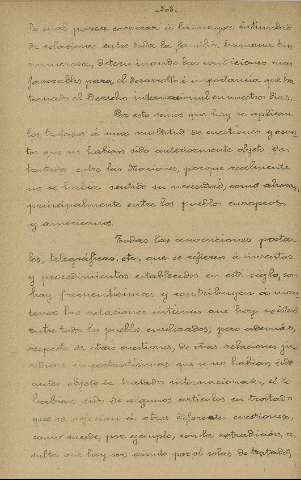 de relaciones entre toda la familia humana tan
numerosa, determinando las condiciones más
favorables para el desarrollo é importancia que ha
tomado el Derecho internacional en nuestros días.
Por esto vemos que hoy se aplican
los tratados á una multitud de cuestiones y asun-
tos que no habían sido anteriormente objeto de
tratados entre las Naciones, porque realmente
no se había sentido su necesidad, como ahora,
principalmente entre los pueblos europeos
y americanos.
Todas las convenciones posta-
les, telegráficas, etc, que se refieren á inventos
y procedimientos establecidos en este siglo, son
hoy frecuentísimas y contribuyen á man-
tener las relaciones íntimas que hoy existen
entre todos los pueblos civilizados; pero además,
respecto de otras cuestiones, de otras relaciones ju-
rídicas importantísimas que no habían sido
antes objeto de tratados internacionales, ó lo
habían sido de algunos artículos en tratados
que se referían á otras diferentes cuestiones,
como sucede, por ejemplo, con la extradición, re-
sulta que hoy son por sí solas de tratados,